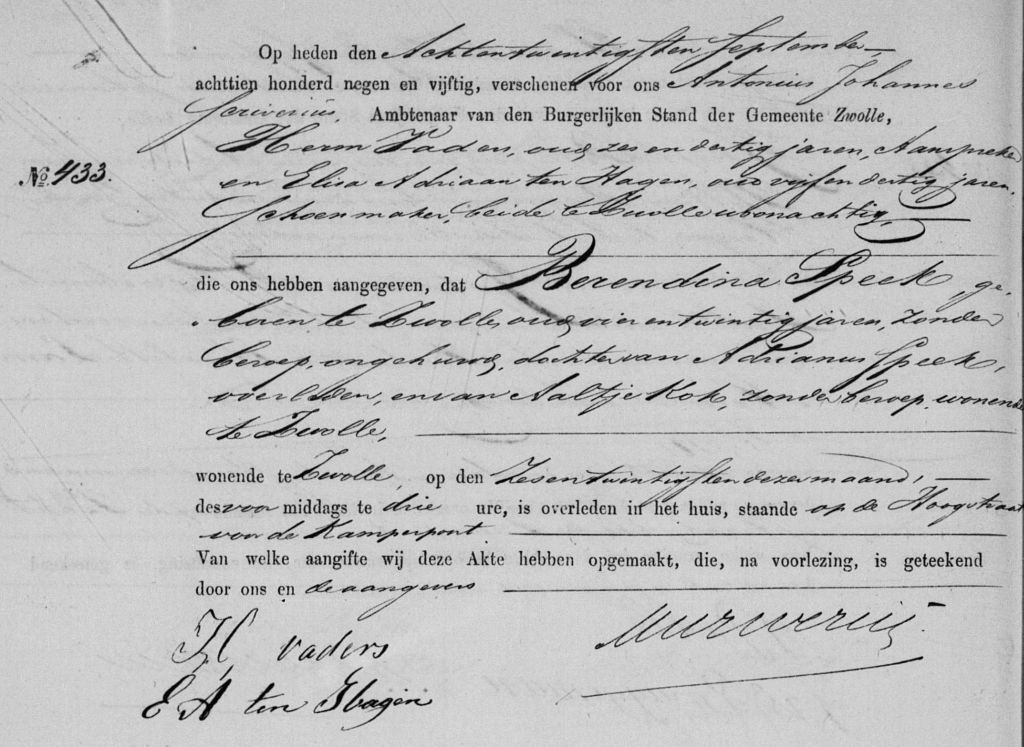 Op heden den Achtentwintigsten September
achttien honderd negen en vijftig, verschenen voor ons Antonius Johannes
Scriverius, Ambtenaar van den Burgerlijken Stand der Gemeente Zwolle,
Nº. 433.
Herm Vaders, oud zes en dertig jaren, Aanspreker
en Elisa Adriaan ten Hagen, oud vijf en dertig jaren,
Schoenmaker, beide te Zwolle woonachtig,
die ons hebben aangegeven, dat Berendina Speek, ge-
boren te Zwolle, oud vier en twintig jaren, zonder
beroep, ongehuwd, dochter van Adrianus Speek,
overleden, en van Aaltje Kok, zonder beroep, wonende
te Zwolle,
wonende te Zwolle, op den Zesentwintigsten dezer maand,
des voor middags te drie ure, is overleden in het huis, staande op de Hoogstraat
voor de Kamperpoort
Van welke aangifte wij deze Akte hebben opgemaakt, die, na voorlezing, is geteekend
door ons en de aangevers
H, vaders
E A ten Hagen